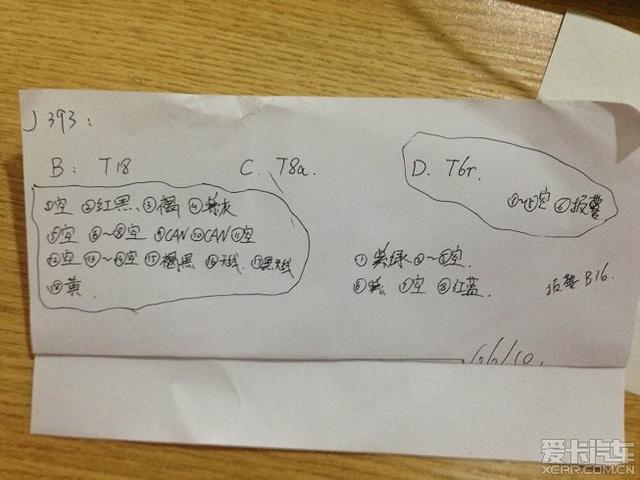 J393:
B: T18
①空 ②红黑、③褐 ④紫灰
⑤空 ⑥~⑧空 ⑨CAN ⑩CAN ⑪空
⑫空 ⑬~⑭空 ⑮褐黑 ⑯天线 ⑰黑天线
⑱黄
C. T8a
①紫绿 ②~⑤空
⑥紫 ⑦空 ⑧红蓝
D. T6r.
①~⑤空 ⑥报警
报警 B16.
爱卡汽车
XCAR.COM.CN